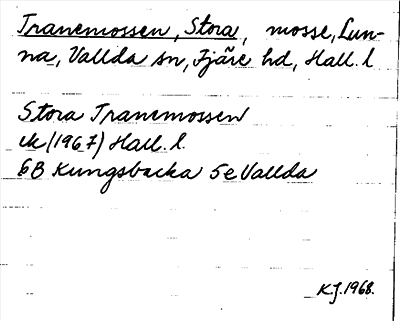 Tranemossen, Stora, mosse, Lun-
na, Vallda sn, Fjäre hd, Hall. l
Stora Tranemossen
ek (1967) Hall. l.
6B Kungsbacka 5e Vallda
K.J. 1968.